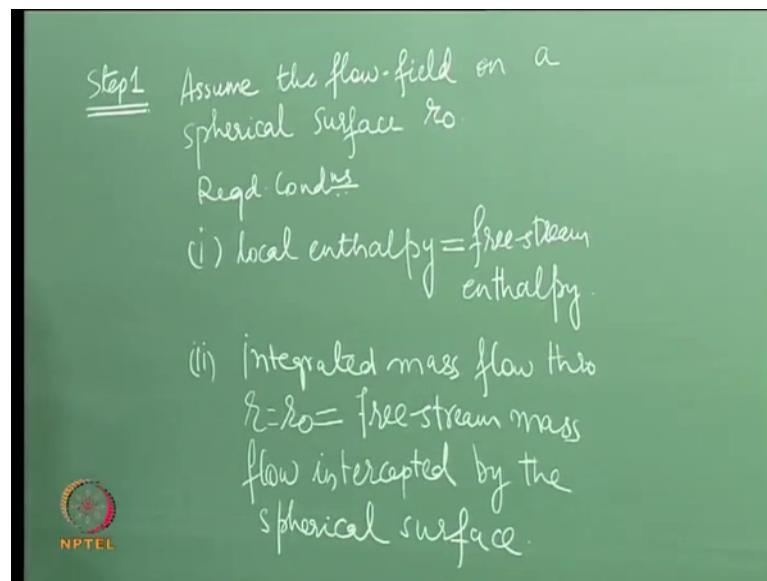 Step1 Assume the flow-field on a
spherical surface r0.
Reqd. Condns
(i) local enthalpy = free-stream
enthalpy.
(ii) integrated mass flow thro
r=r0= free-stream mass
flow intercepted by the
spherical surface.
NPTEL